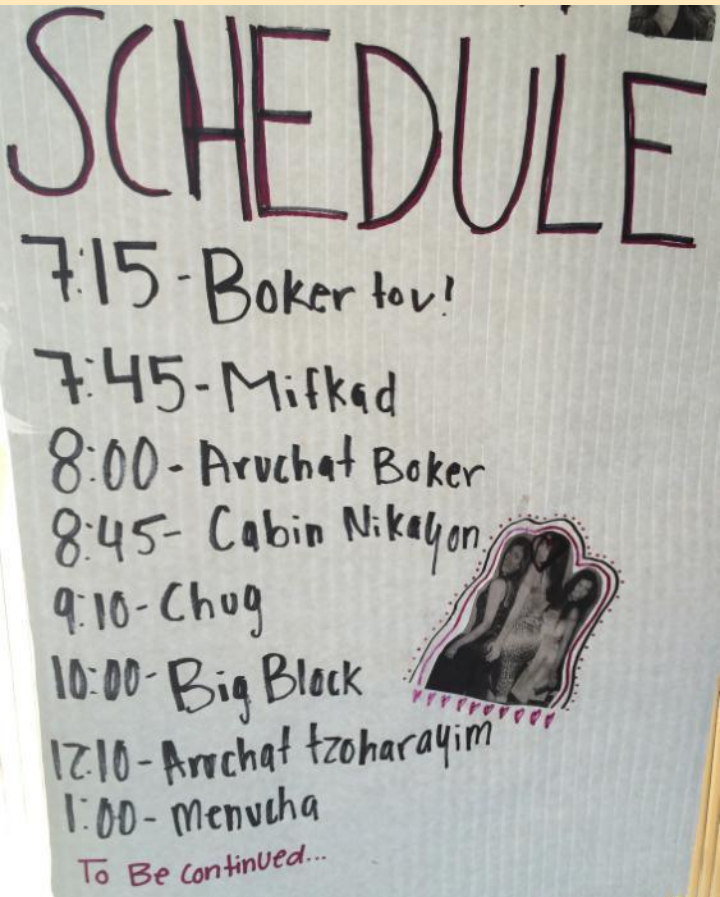 SCHEDULE
7:15 - Boker tov!
7:45 - Mifkad
8:00 - Aruchat Boker
8:45 - Cabin Nikayon
9:10 - Chug
10:00 - Big Block
12:10 - Aruchat tzoharayim
1:00 - Menucha
To Be continued...